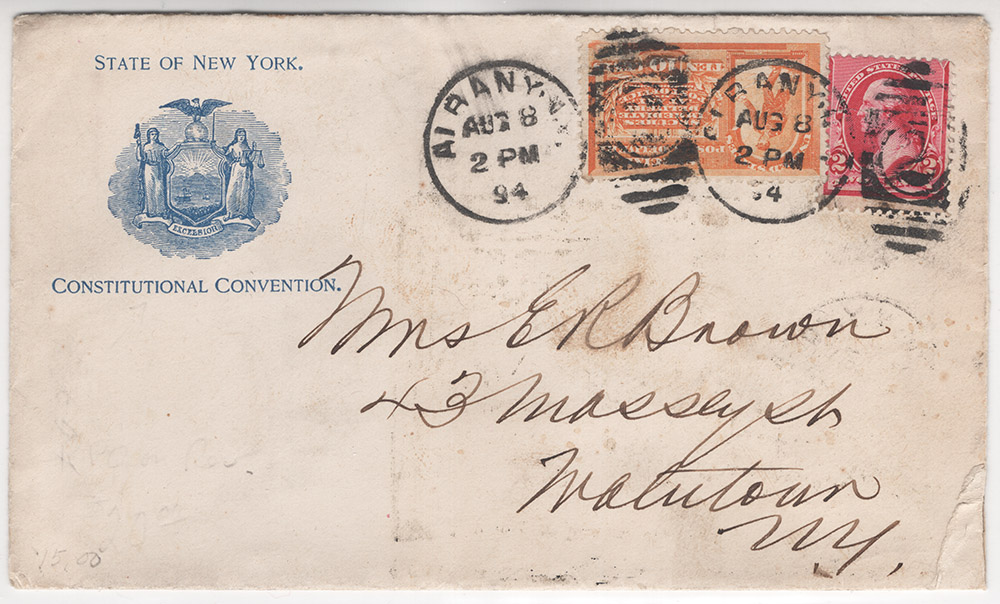 STATE OF NEW YORK.
EXCELSIOR
CONSTITUTIONAL CONVENTION.
ALBANY, N.Y.
AUG 8
2 PM
94
ALBANY, N.Y.
AUG 8
2 PM
94
UNITED STATES
2 2
Mrs E R Brown
43 Massey st
Watertown
N.Y.
15.00